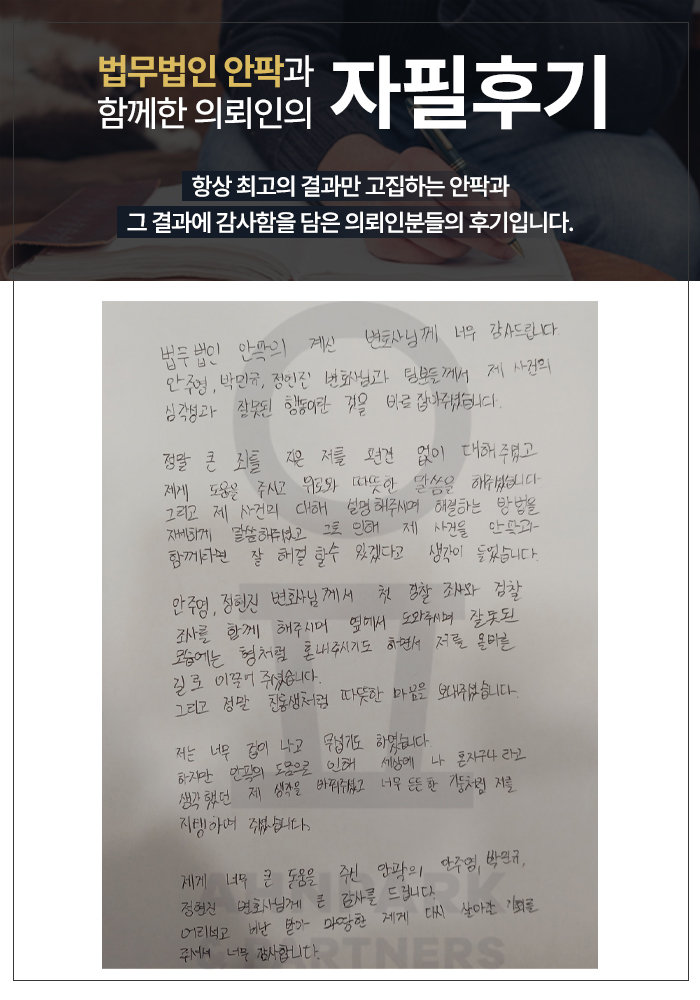 법무법인 안팍과
함께한 의뢰인의
자필후기
항상 최고의 결과만 고집하는 안팍과
그 결과에 감사함을 담은 의뢰인분들의 후기입니다.
법무법인 안팍의 계신 변호사님께 너무 감사드립니다
안주영, 박민규, 정현진 변호사님과 팀분들께서 제 사건의
심각성과 잘못된 행동이란 것을 바로 잡아주셨습니다.
정말 큰 죄를 지은 저를 편견 없이 대해주셨고
제게 도움을 주시고 위로와 따뜻한 말씀을 해주셨습니다
그리고 제 사건의 대해 설명해주시며 해결하는 방법을
자세하게 말씀해주셨고 그로 인해 제 사건을 안팍과
함께하면 잘 해결 할수 있겠다고 생각이 들었습니다.
안주영, 정현진 변호사님께서 첫 경찰 조사와 검찰
조사를 함께 해주시며 옆에서 도와주시며 잘못된
모습에는 형처럼 혼내주시기도 하면서 저를 올바른
길로 이끌어 주셨습니다.
그리고 정말 친동생처럼 따뜻한 마음을 보내주셨습니다.
저는 너무 겁이 나고 무섭기도 하였습니다
하지만 안팍의 도움으로 인해 세상에 나 혼자구나 라고
생각했던 제 생각을 바꿔주셨고 너무 든든한 기둥처럼 저를
지탱하여 주셨습니다.
제게 너무 큰 도움을 주신 안팍의 안주영, 박민규,
정현진 변호사님께 큰 감사를 드립니다
어리석고 비난 받아 마땅한 제게 다시 살아갈 기회를
주셔서 너무 감사합니다.
PARTNERS